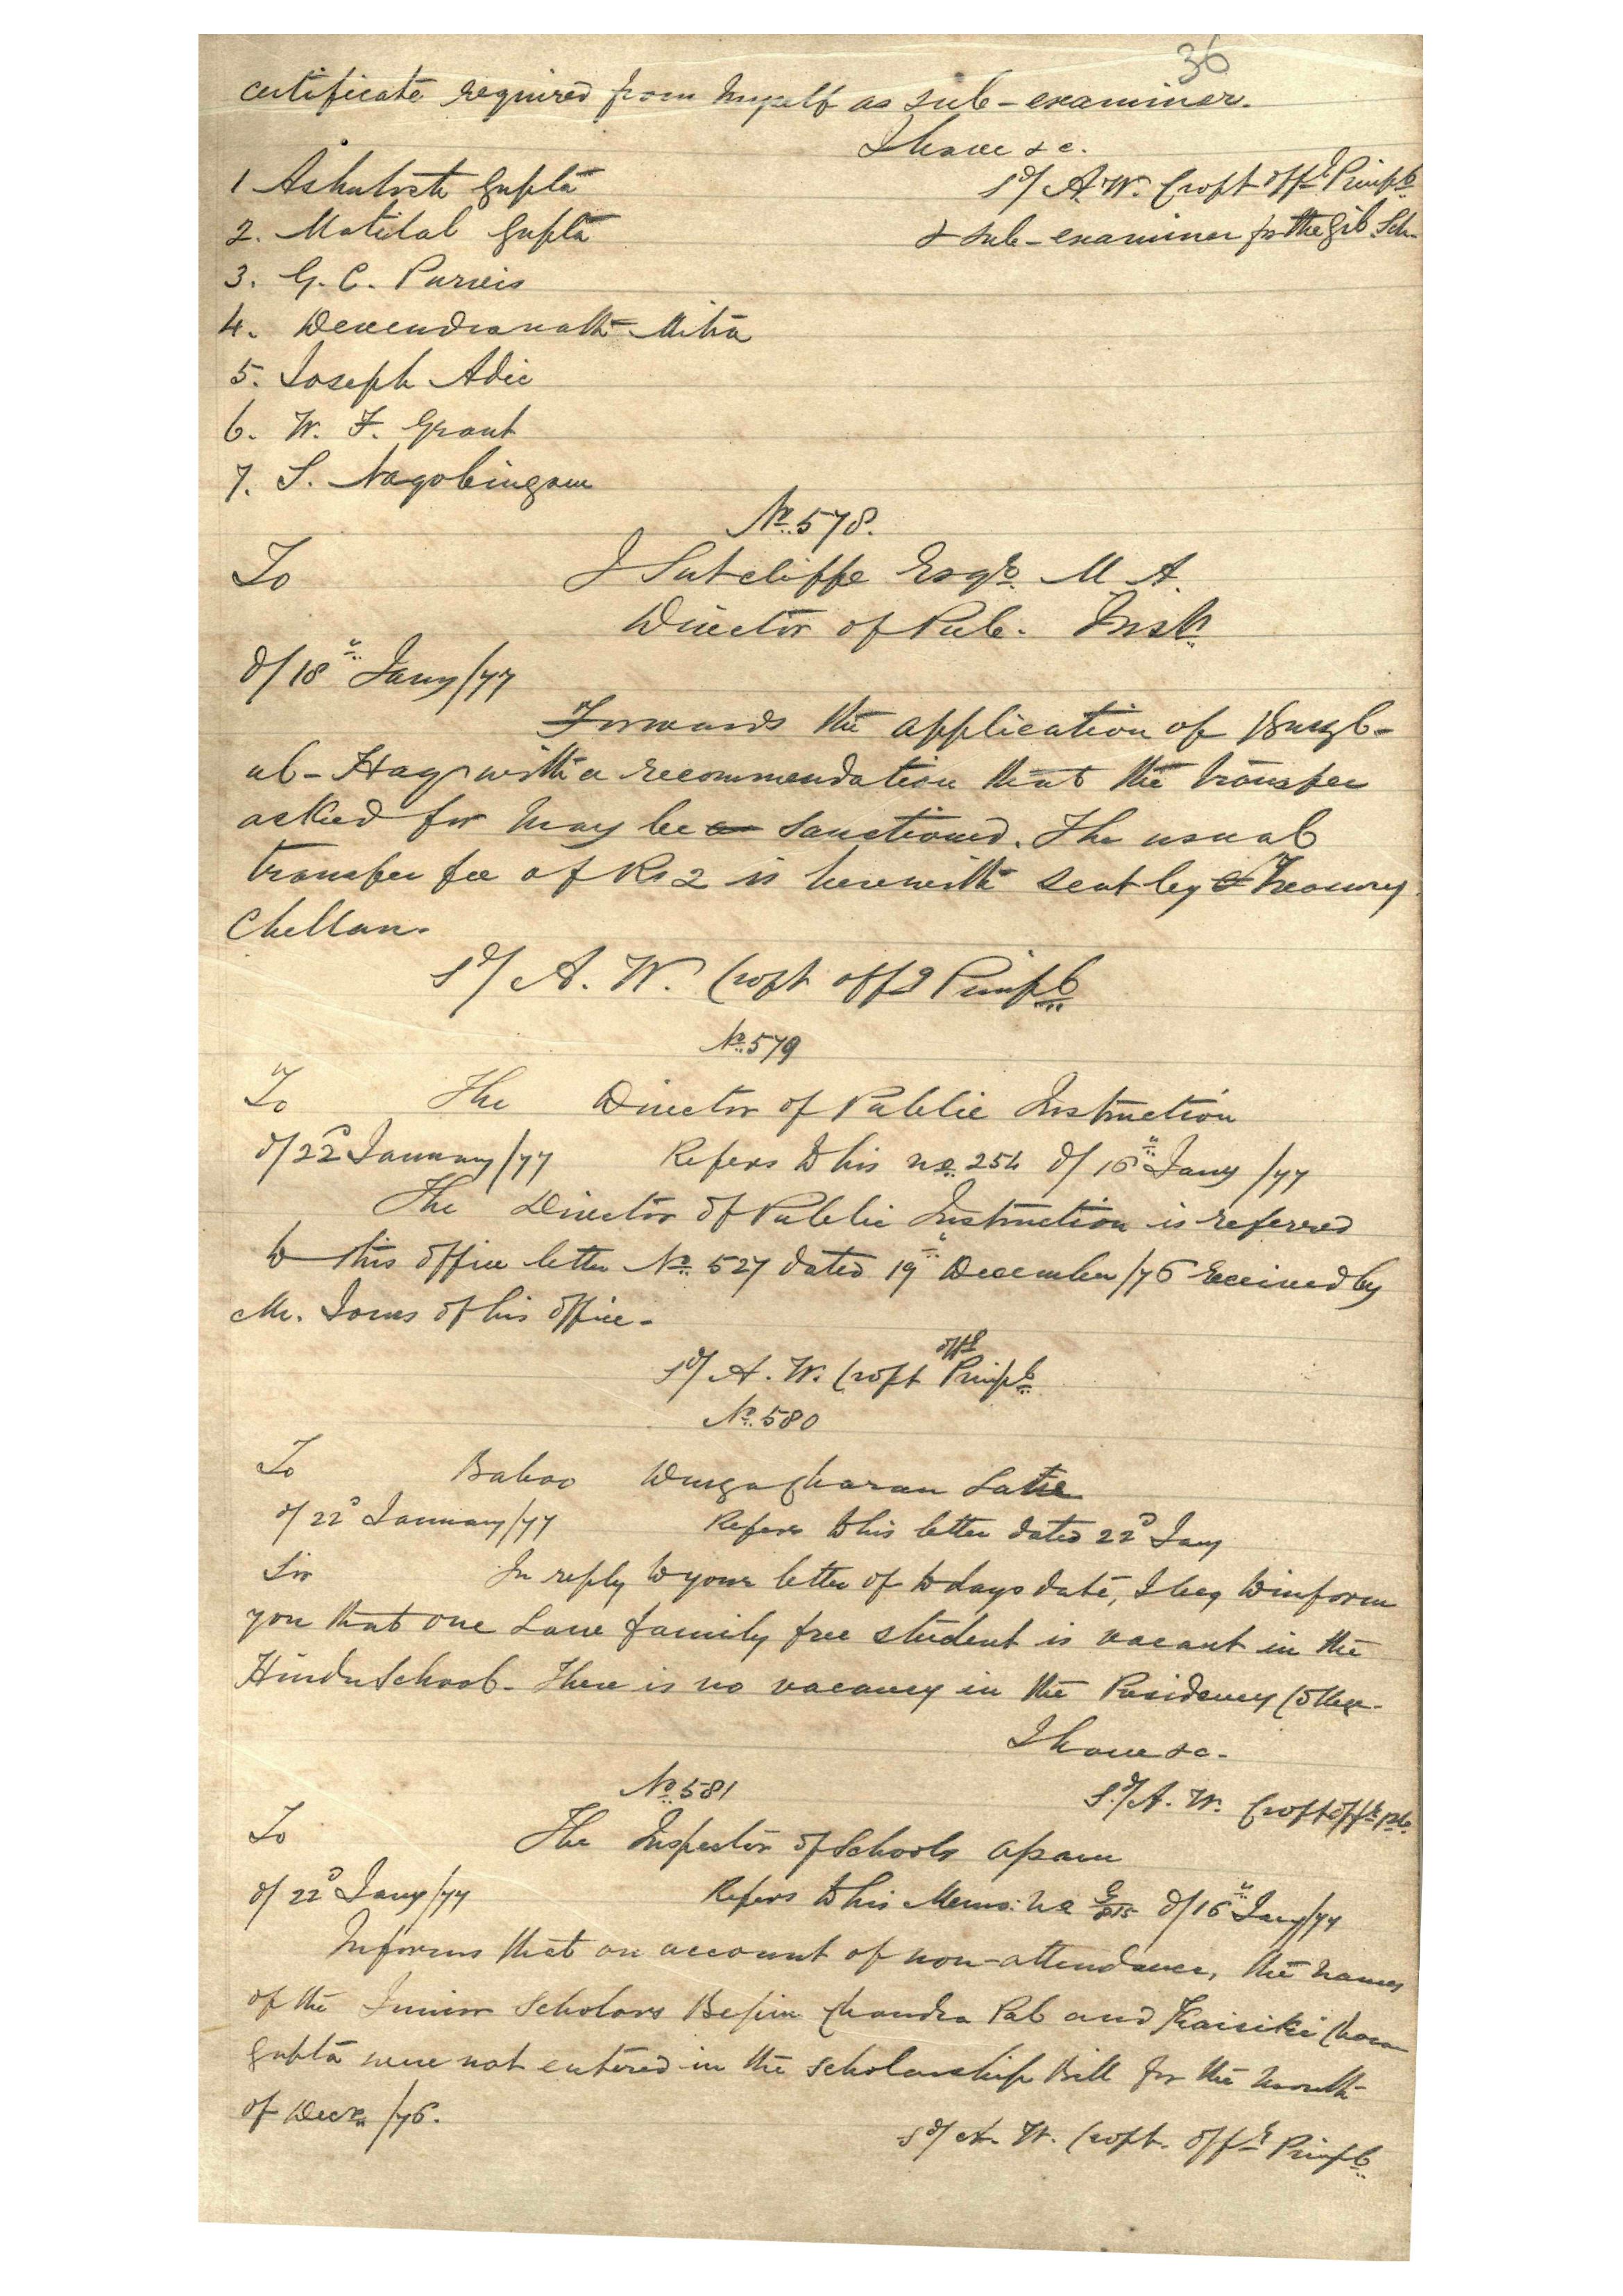 36
certificate required from myself as sub-examiner.
I have &c.
1 Ashutosh Gupta
Sd/ A. W. Croft Offg Princpl
2. Matilal Gupta
& sub-examiner for the Gil Sch.
3. G. C. Purves
4. Devendranath Mitra
5. Joseph Adie
6. W. F. Grant
7. S.
No. 578.
To J Sutcliffe Esqre. M A.
Director of Pub. Instn
d/ 18th Jany/77
Forwards the application of
ul-Haq with a recommendation that the transfer
asked for may be sanctioned. The usual
transfer fee of Rs 2 is herewith sent by Treasury
Chellan.
Sd/ A. W. Croft offg Princpl
No. 579
To The Director of Public Instruction
d/ 22d January/77 Refers to his no. 254 d/ 16th Jany /77
The Director of Public Instruction is referred
to this office letter No. 527 dated 19th December/76 received by
Mr. Jones of his office.
Sd/ A. W. Croft offg Princpl
No. 580
To Baboo Durga Charan Laha
d/ 22d January/77 Refers to his letter dated 22d Jany
Sir In reply to your letter of todays date, I beg to inform
you that one Law family free student is vacant in the
Hindu School. There is no vacancy in the Presidency College.
I have &c.
No. 581
Sd/ A. W. Croft offg
To The Inspector of Schools Assam
d/ 22d Jany/77 Refers to his Memo: no d/ 16th Jany/77
Informs that on account of non-attendance, the names
of the Junior Scholars Bepin Chandra Pal and Charan
Gupta were not entered in the scholarship Bill for the month
of Decr. /76.
Sd/ A. W. Croft. Offg Princpl